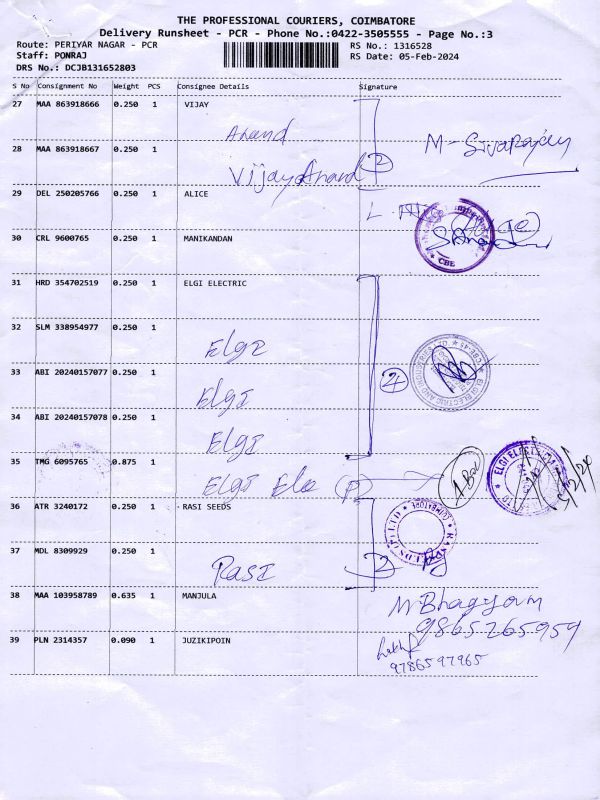 THE PROFESSIONAL COURIERS, COIMBATORE
Delivery Runsheet - PCR - Phone No.:0422-3505555 - Page No.:3
Route: PERIYAR NAGAR - PCR
RS No.: 1316528
Staff: PONRAJ
RS Date: 05-Feb-2024
DRS No.: DCJB131652803
S No Consignment No Weight PCS Consignee Details Signature
27 MAA 863918666 0.250 1 VIJAY
Anand
M-Sivarajan
28 MAA 863918667 0.250 1
Vijay Anand 2
29 DEL 250205766 0.250 1 ALICE
30 CRL 9600765 0.250 1 MANIKANDAN
CBE
31 HRD 354702519 0.250 1 ELGI ELECTRIC
32 SLM 338954977 0.250 1
Elgi
33 ABI 20240157077 0.250 1
Elgi
ELGI ELECTRIC AND INDUSTRIES LTD
34 ABI 20240157078 0.250 1
Elgi
35 TMG 6095765 0.875 1
Elgi Ele (P)
ELGI ELECTRIC
36 ATR 3240172 0.250 1 RASI SEEDS
COIMBATORE
37 MDL 8309929 0.250 1
RASI 2
38 MAA 103958789 0.635 1 MANJULA
M Bhagyam
9865265959
39 PLN 2314357 0.090 1 JUZIKIPOIN
9786597965